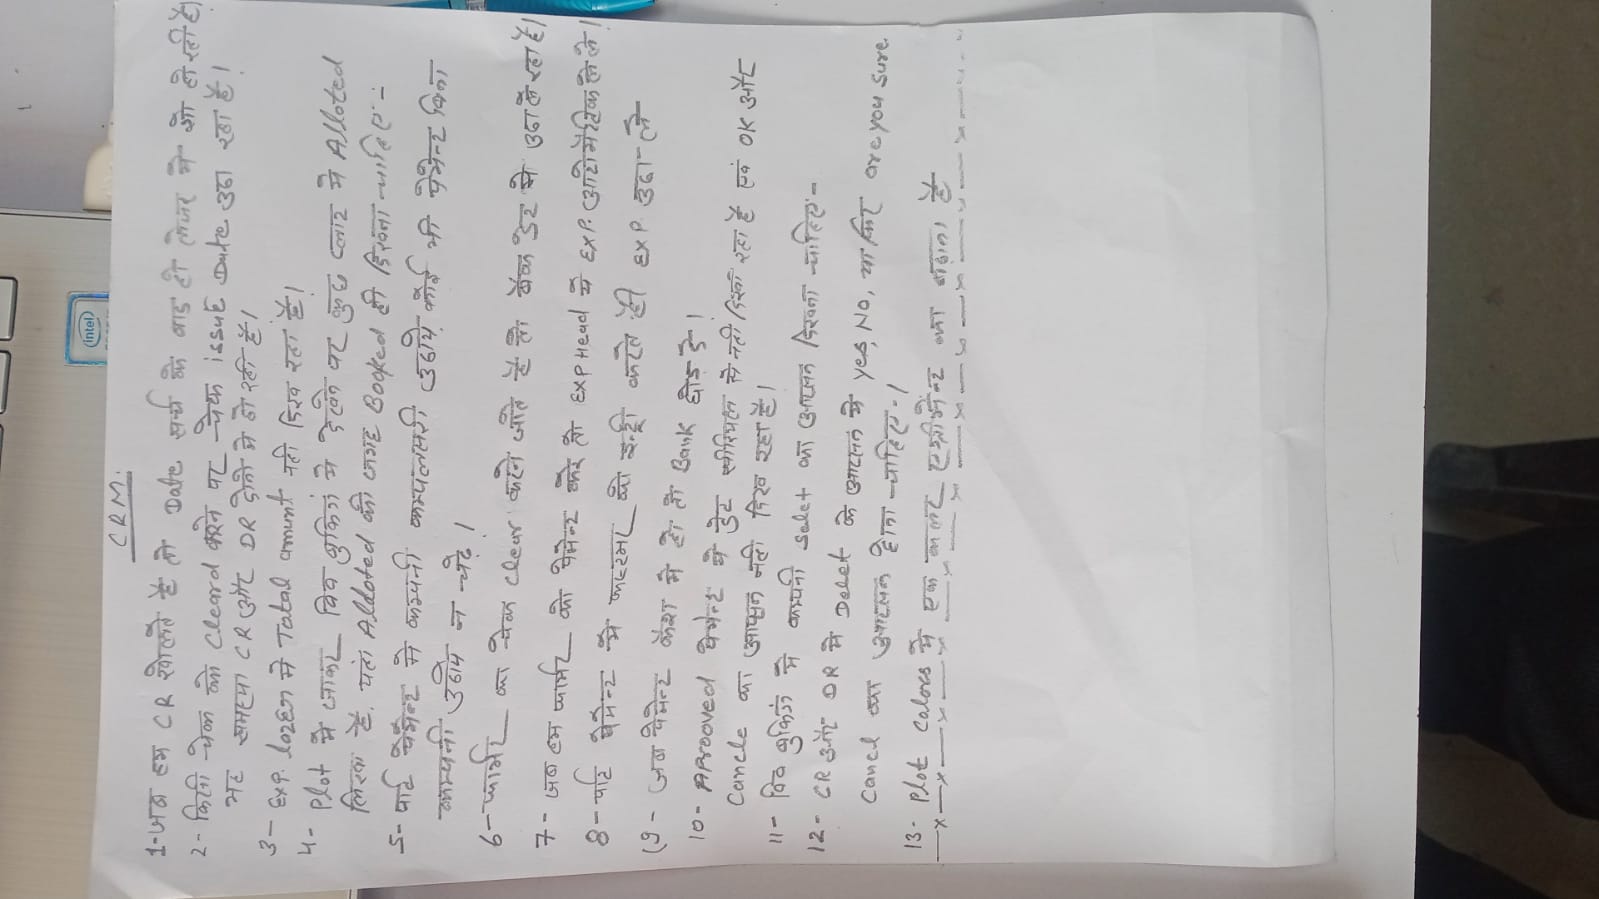 intel
CRM.
1- जब हम CR खोलते है तो Date सर्च के बाद ही लेजर मे शो हो रही है।
2- किसी चेक को Cleard करने पर चेक issue Date उठा रहा है।
यह समस्या CR और DR दोनो मे हो रही है।
3- Exp. lazer मे Total amunt नही दिख रहा है।
4- Plot मे जाकर विव बुकिगं मे देखने पर कुछ प्लाट मे Alloted
लिखा है, यहां Aldoted की जगह Booked ही दिखना चाहिए -
5- पार्ट पेमेन्ट मे कम्पनी कम्पलसरी उठाये, कोई भी पेमेन्ट बिना
कम्पनी उठाये न चढ़े।
6- फार्मर का चेक clear करने जाते है तो बैक डेट मे उठा ले रहा है।
7- जब हम फार्मर को पेमेन्ट करे तो EXP Head मे EXP. आटोमैटिक ले ले।
8- पार्ट पेमेन्ट मे कस्टमर की इन्ट्री करते ही EXP. उठा ले
9- जब पेमेन्ट कैश मे हो तो Bank छोड़ दे।
10- AProoved पेमेन्ट मे डेट सीरियल से नही दिखा रहा है एवं OK और
Cancle का आप्सन नही दिख रहा है।
11- विव बुकिगं मे कम्पनी Selet का आप्सन दिखना चाहिए -
12- CR और DR मे Delet के आप्सन मे Yes, No, या फिर are you sure
Cancl का आप्सन होना चाहिए -।
13- Plot Colors मे एक कलर एग्रीमेंन्ट का बढ़ाना है